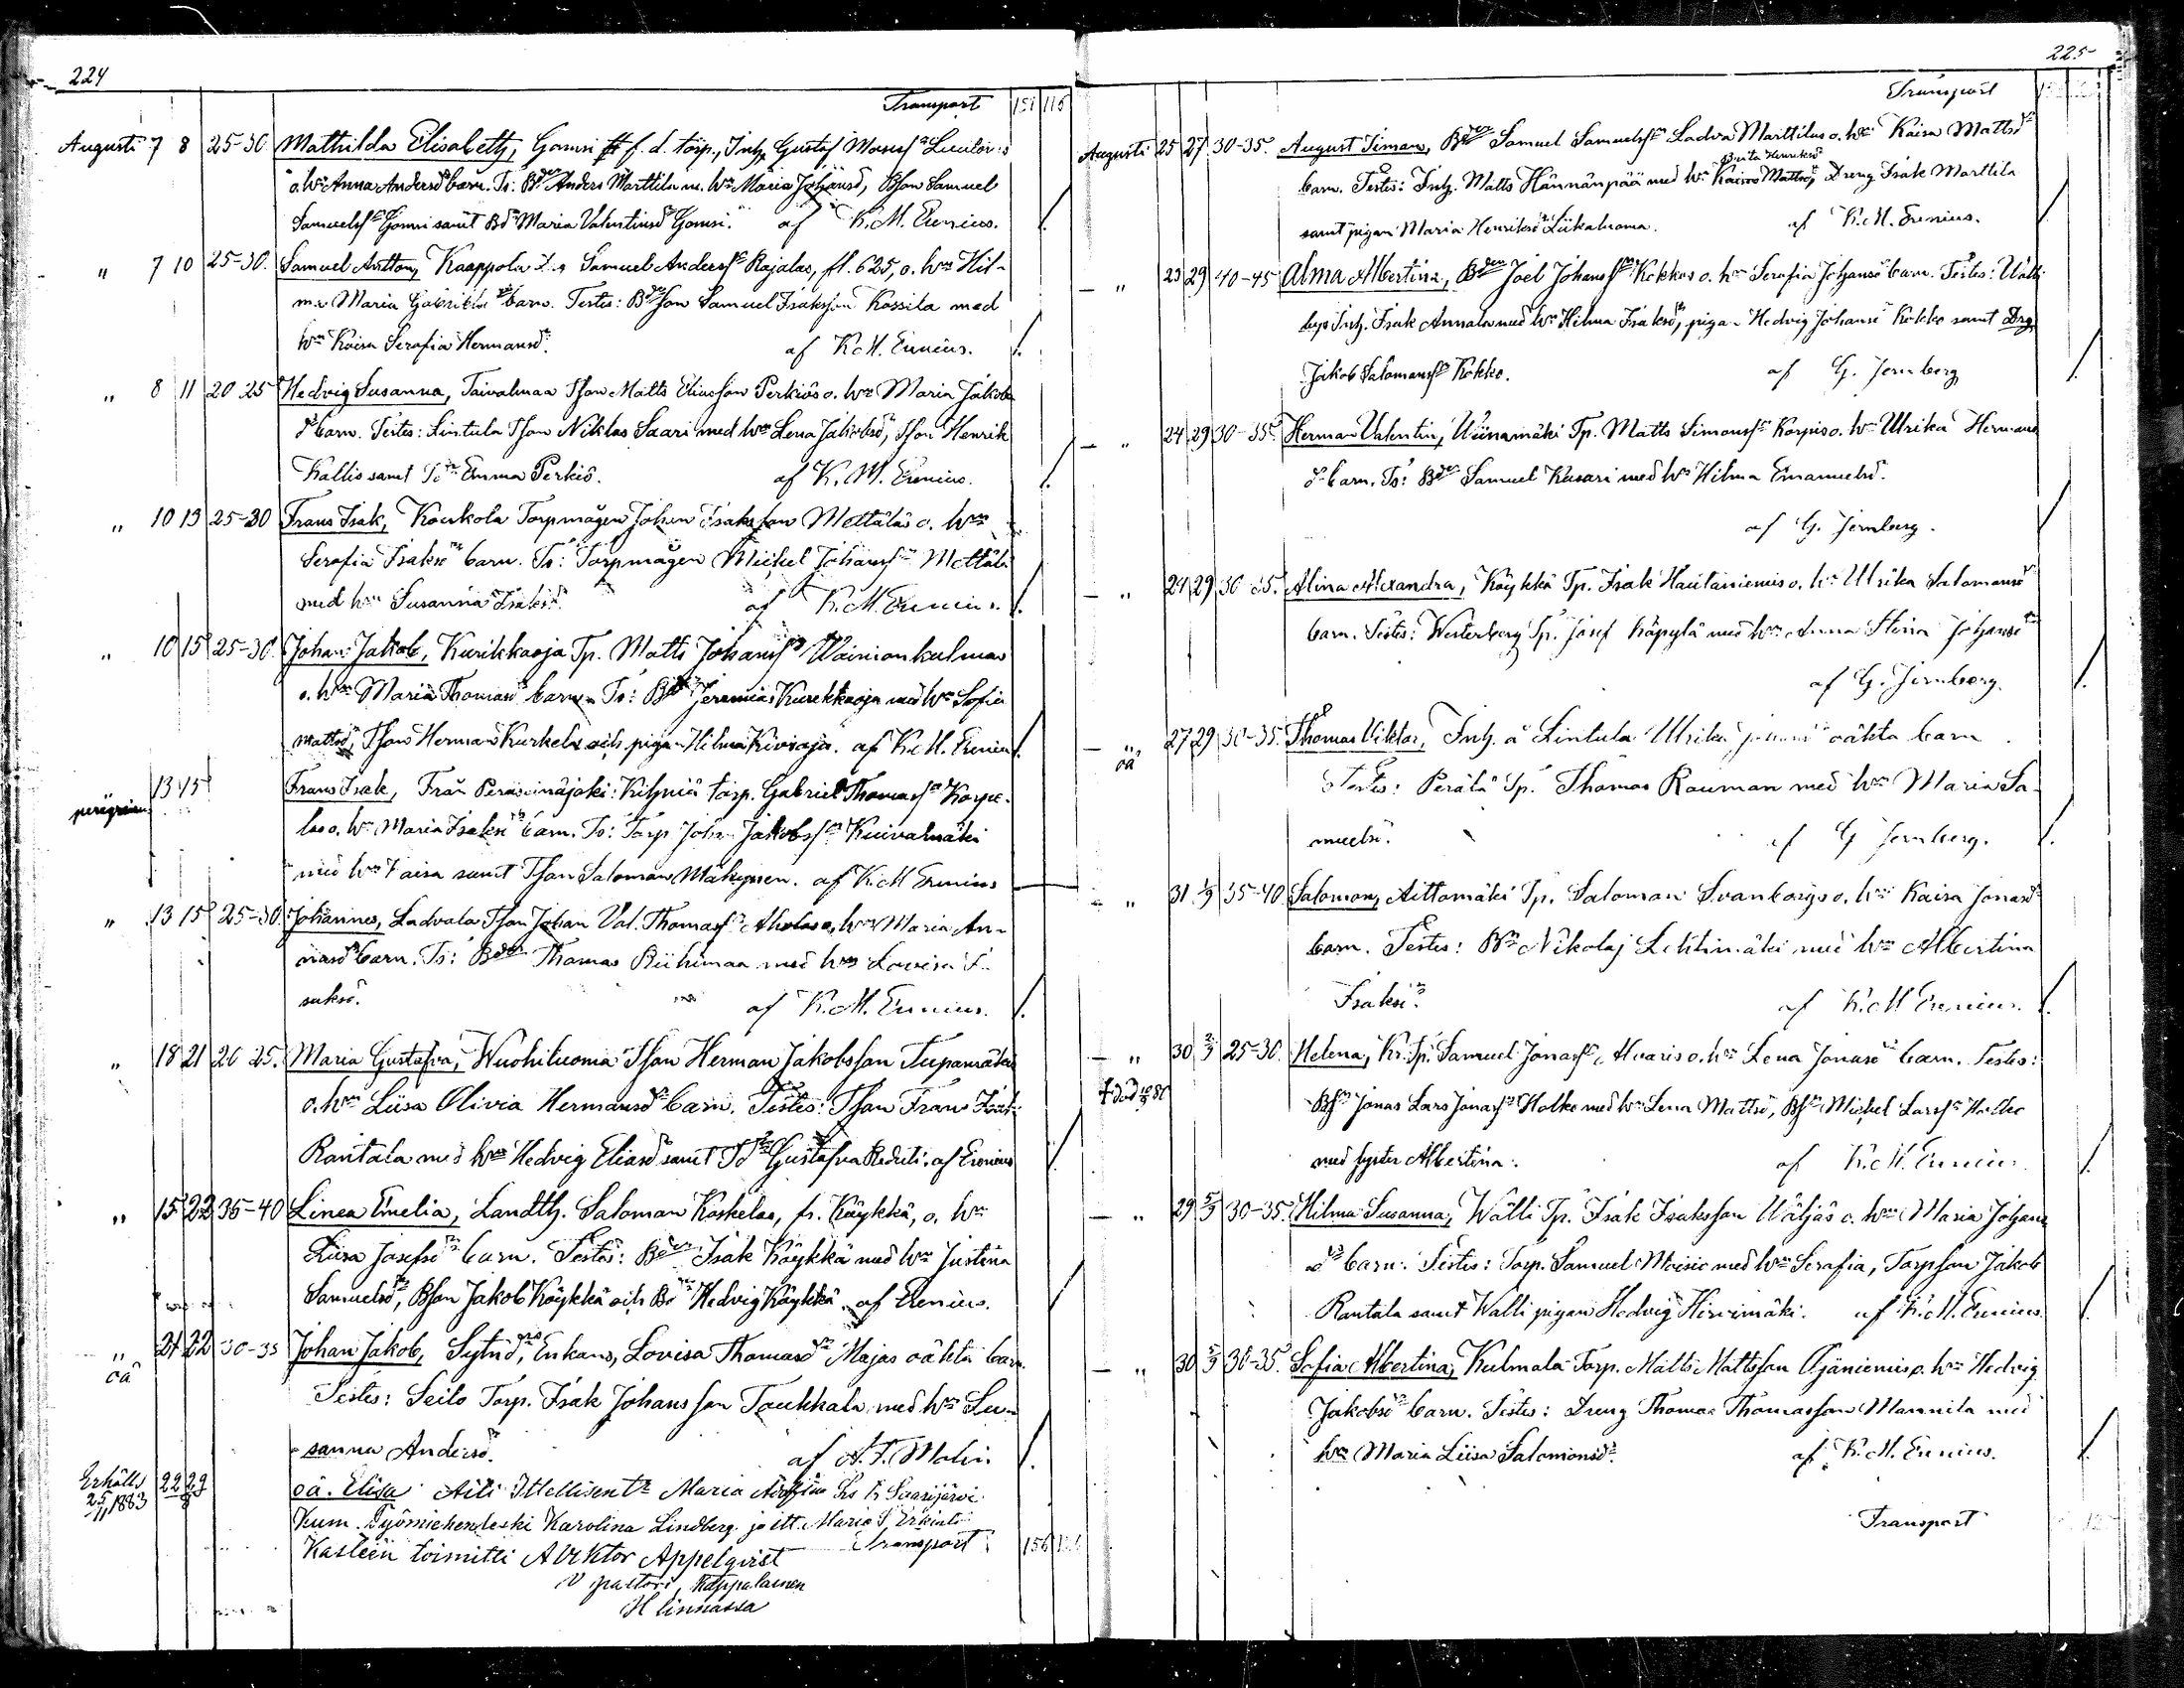 224
Transport 151 115
Augusti 7 8 25-30 Mathilda Elisabeth, Gomsi f. d. torp., Inh. Gustaf
o. hn Anna Andersd barn. Ts: Bden Anders Marttila m. hn Maria Johansd, Bson Samuel
Samuelsn Gomsi samt Bdn Maria Valentinsd Gomsi. af K. M. Erenius.
" 7 10 25-30. Samuel Antton, Kaappola Samuel Anderssn Rajalas, fl. 625, o. hn Hil-
ma Maria Gabrielsd barn. Testes: Bdeson Samuel Isaksson Kassila med
hn Kaisa Serafia Hermansd. af K. M. Erenius.
" 8 11 20 25 Hedvig Susanna, Taivalmaa Tson Matts Eliasson Perkiös o. hn Maria Jakobs
d barn. Testes: Lintula Tson Niklas Saari med hn Lena Jakobsd, Tson Henrik
Kallis samt Tdn Emma Perkiö. af K. M. Erenius.
" 10 13 25-30 Frans Isak, Koskola Torpmågen Johan Isaksson Mettäläs o. hn
Serafia Isaksd barn. Ts: Torpmågen Mickel Johanssn Mettälä
med hn Susanna Isaksd. af K. M. Erenius.
" 10 15 25-30 Johan Jakob, Kurikkaoja Tp. Matts Johanssn Wainionkulmas
o. hn Maria Thomasd barn. Ts: Bden Jeremias Kurikkaoja med hn Sofia
Mattsd, Tson Herman Kurkela och pigan Hilma Kivioja. af K. M. Erenius.
peregrin 13 15 Frans Isak, Från Peräseinäjoki: Kihniä torp. Gabriel Thomassn Karpe-
las o. hn Maria Isaksd barn. Ts: Torp Johan Jakobssn Kuivalmäki
med hn Kaisa samt Tson Saloman Mäkynen. af K. M Erenius
" 13 15 25-30. Johannes, Ladvala Tson Johan Val. Thomassn Aholas o. hn Maria An-
nasd barn. Ts: Bden Thomas Riihimaa med hn Lovisa I-
saksd. af K. M. Erenius.
" 18 21 20 25. Maria Gustafva, Wuohiluoma Tson Herman Jakobsson Tupamäkis
o. hn Liisa Olivia Hermansd barn. Testes: Tson Frans Isak
Rantala med hn Hedvig Eliasd samt Tdn Gustafva Reduti. af Erenius
" 15 22 35-40 Linea Emelia, Landth. Saloman Koskelas, fr. Käykkä, o. hn
Liisa Josefsd barn. Testes: Bden Isak Käykkä med hn Justina
Samuelsd, Bson Jakob Käykkä och Bdn Hedvig Käykkä. af Erenius.
" oä 21 22 30-35 Johan Jakob, Sytnd, Enkans, Lovisa Thomasd Majas oäkta barn
Testes: Seilo Torp. Isak Johansson Taukkala med hn Su-
sanna Andersd. af A. F. Malin.
Erhölls 25/11 1883 22 29 oä. Elisa Äiti Itsellisen tr Maria fr Saarijärvi
Kum. Työmiehen leski Karolina Lindberg ja itt. Maria
Kasteen toimitti A Viktor Appelqvist Transport 156
v pastori, Kappalainen
H linnassa
225
Transport
Augusti 25 27 30-35. August Siman, Bden Samuel Samuelssn Ladva Marttilas o. hn Kaisa Mattsd
Brita Henriksd
barn. Testes: Inh. Matts Hännänpää med hn Kaisa Mattsd, Dreng Isak Marttila
samt pigan Maria Henriksd Liikaluoma. af K. M. Erenius.
" 23 29 40-45 Alma Albertina, Bden Joel Johanssn Kokkos o. hn Serafia Johansd barn. Testes: Wälli
bys Inh. Isak Annala med hn Hilma Isaksd, pigan Hedvig Johansd Kokko samt Drg
Jakob Salomanssn Kokko. af G. Jernberg
" 24 29 30-35 Herman Valentin, Wiinamäki Tp. Matts Simonssn Korpis o. hn Ulrika Hermans
d barn. Ts: Bden Samuel Kasari med hn Hilma Emanuelsd.
af G. Jernberg.
" 24 29 30 35. Alina Alexandra, Käykkä Tp. Isak Hautaniemis o. hn Ulrika Salomansd
barn. Testes: Westerberg Tp. Josef Käpylä med hn Anna Stina Johansd
af G. Jernberg.
" oä 27 29 30-35. Thomas Viktor, Inh. å Lintula Ulrika oäkta barn.
Testes: Perälä Tp. Thomas Rauman med hn Maria Sa-
muelsd. af G Jernberg.
" 31 1/9 35-40 Saloman, Aittomäki Tp. Saloman Svankorys o. hn Kaisa Jonasd
barn. Testes: Bdn Nikolaj Lehtimäki med hn Albertina
Isaksd. af K. M Erenius.
" 30 2/9 25-30. Helena, Kr. Tp. Samuel Jonassn o. hn Lena Jonasd barn. Testes:
Bsn Jonas Lars Jonassn Holko med hn Lena Mattsd, Bsn Mickel Larssn Holko
med syster Albertina. af K. M. Erenius
" 29 5/9 30-35. Hilma Susanna, Wälli Tp. Isak Isaksson Wäljäs o. hn Maria Johans
d barn. Testes: Torp. Samuel Moisio med hn Serafia, Torpson Jakob
Rantala samt Walli pigan Hedvig Hirvimäki. af K. M. Erenius.
" 30 5/9 30-35. Sofia Albertina, Kulmala Torp. Matts Mattsson Ojäniemis o. hn Hedvig
Jakobsd barn. Testes: Dreng Thomas Thomasson Mannila med
hn Maria Liisa Salomonsd. af K. M. Erenius.
Transport